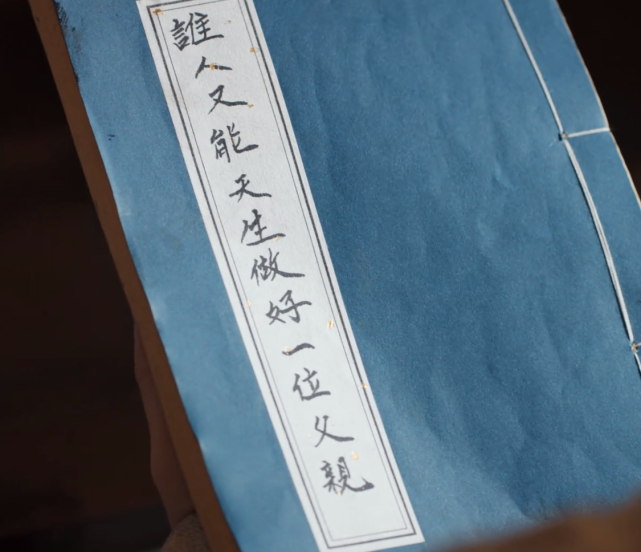 誰人又能天生做好一位父親